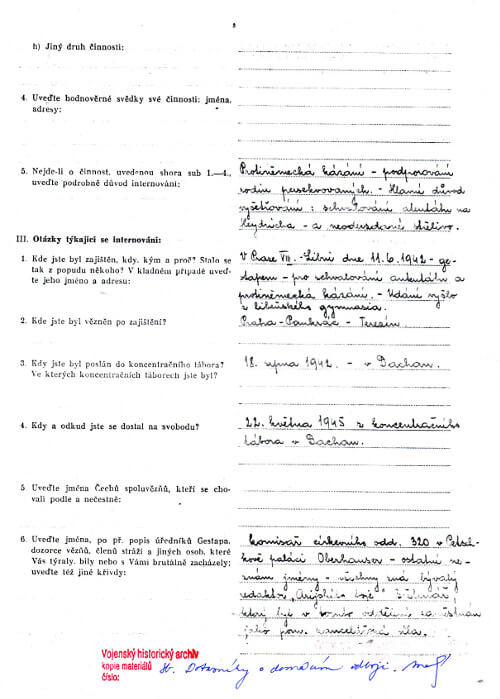 h) Jiný druh činnosti:
4. Uveďte hodnověrné svědky své činnosti: jména,
adresy:
5. Nejde-li o činnost, uvedenou shora sub 1.—4.,
uveďte podrobně důvod internování:
Protiněmecká kázání - podporování
rodin persekvovaných. - Hlavní důvod
vyšetřování: schvalování atentátu na
Heydricha - a neodevzdané střelivo.
III. Otázky týkající se internování:
1. Kde jste byl zajištěn, kdy, kým a proč? Stalo se
tak z popudu někoho? V kladném případě uveď-
te jeho jméno a adresu:
V Praze VII. - Libni dne 11.6.1942 - ge-
stapem - pro schvalování atentátu a
protiněmecká kázání. - Udání vyšlo
z libeňského gymnasia.
2. Kde jste byl vězněn po zajištění?
Praha - Pankrác - Terezín.
3. Kdy jste byl poslán do koncentračního tábora?
Ve kterých koncentračních táborech jste byl?
18. srpna 1942. - v Dachau.
4. Kdy a odkud jste se dostal na svobodu?
22. května 1945 z koncentračního
tábora v Dachau.
5. Uveďte jména Čechů spoluvězňů, kteří se cho-
vali podle a nečestně:
6. Uveďte jména, po př. popis úředníků Gestapa,
dozorce vězňů, členů stráží a jiných osob, které
Vás týraly, bily nebo s Vámi brutálně zacházely;
uveďte též jiné křivdy:
Komisař církevního odd. 320 v Petsch-
kově paláci Oberhauser - ostatní ne-
znám jmény - všechny zná bývalý
redaktor „Arijského boje"
který byl v tomto oddělení zaměstnán
jako pom. kancelářská síla.
Vojenský historický archiv
kopie materiálů
číslo:
St. Dotazníky o domácím odboji.